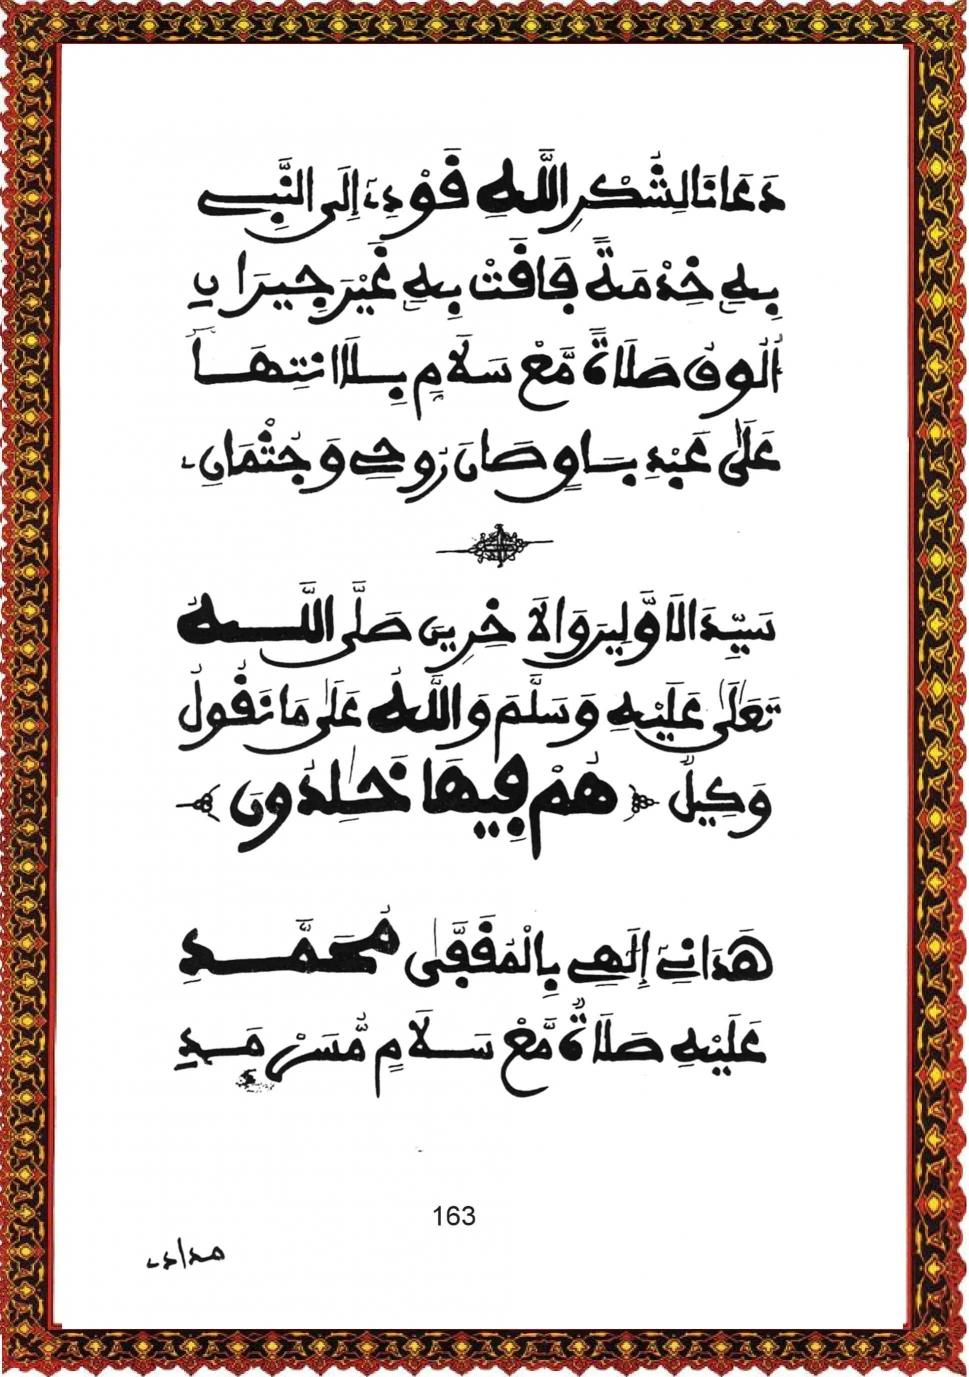 دَعَانَا لِشُكْرِ اللَّهِ قَوْدِي إِلَى النَّبِي
بِهِ خِدْمَةً فَاقَتْ بِهِ غَيْرَ جِيرَانِ
أُلُوفُ صَلَاةٍ مَّعْ سَلَامٍ بِلَا انتِهَا
عَلَى عَبْدِ بَاوٍ صَانَ رُوحِي وَجُثْمَانِ
سَيِّدِ الَاوَّلِينَ وَالَاخِرِينَ صَلَّى اللَّهُ
تَعَالَى عَلَيْهِ وَسَلَّمَ وَاللَّهُ عَلَى مَا نَقُولُ
وَكِيلٌ هُمْ فِيهَا خَٰلِدُونَ
هَدَانِي إِلَٰهِي بِالْمُقَفَّى مُحَمَّدِ
عَلَيْهِ صَلَاةٌ مَّعْ سَلَامٍ مُّسَرْمَدِ
163